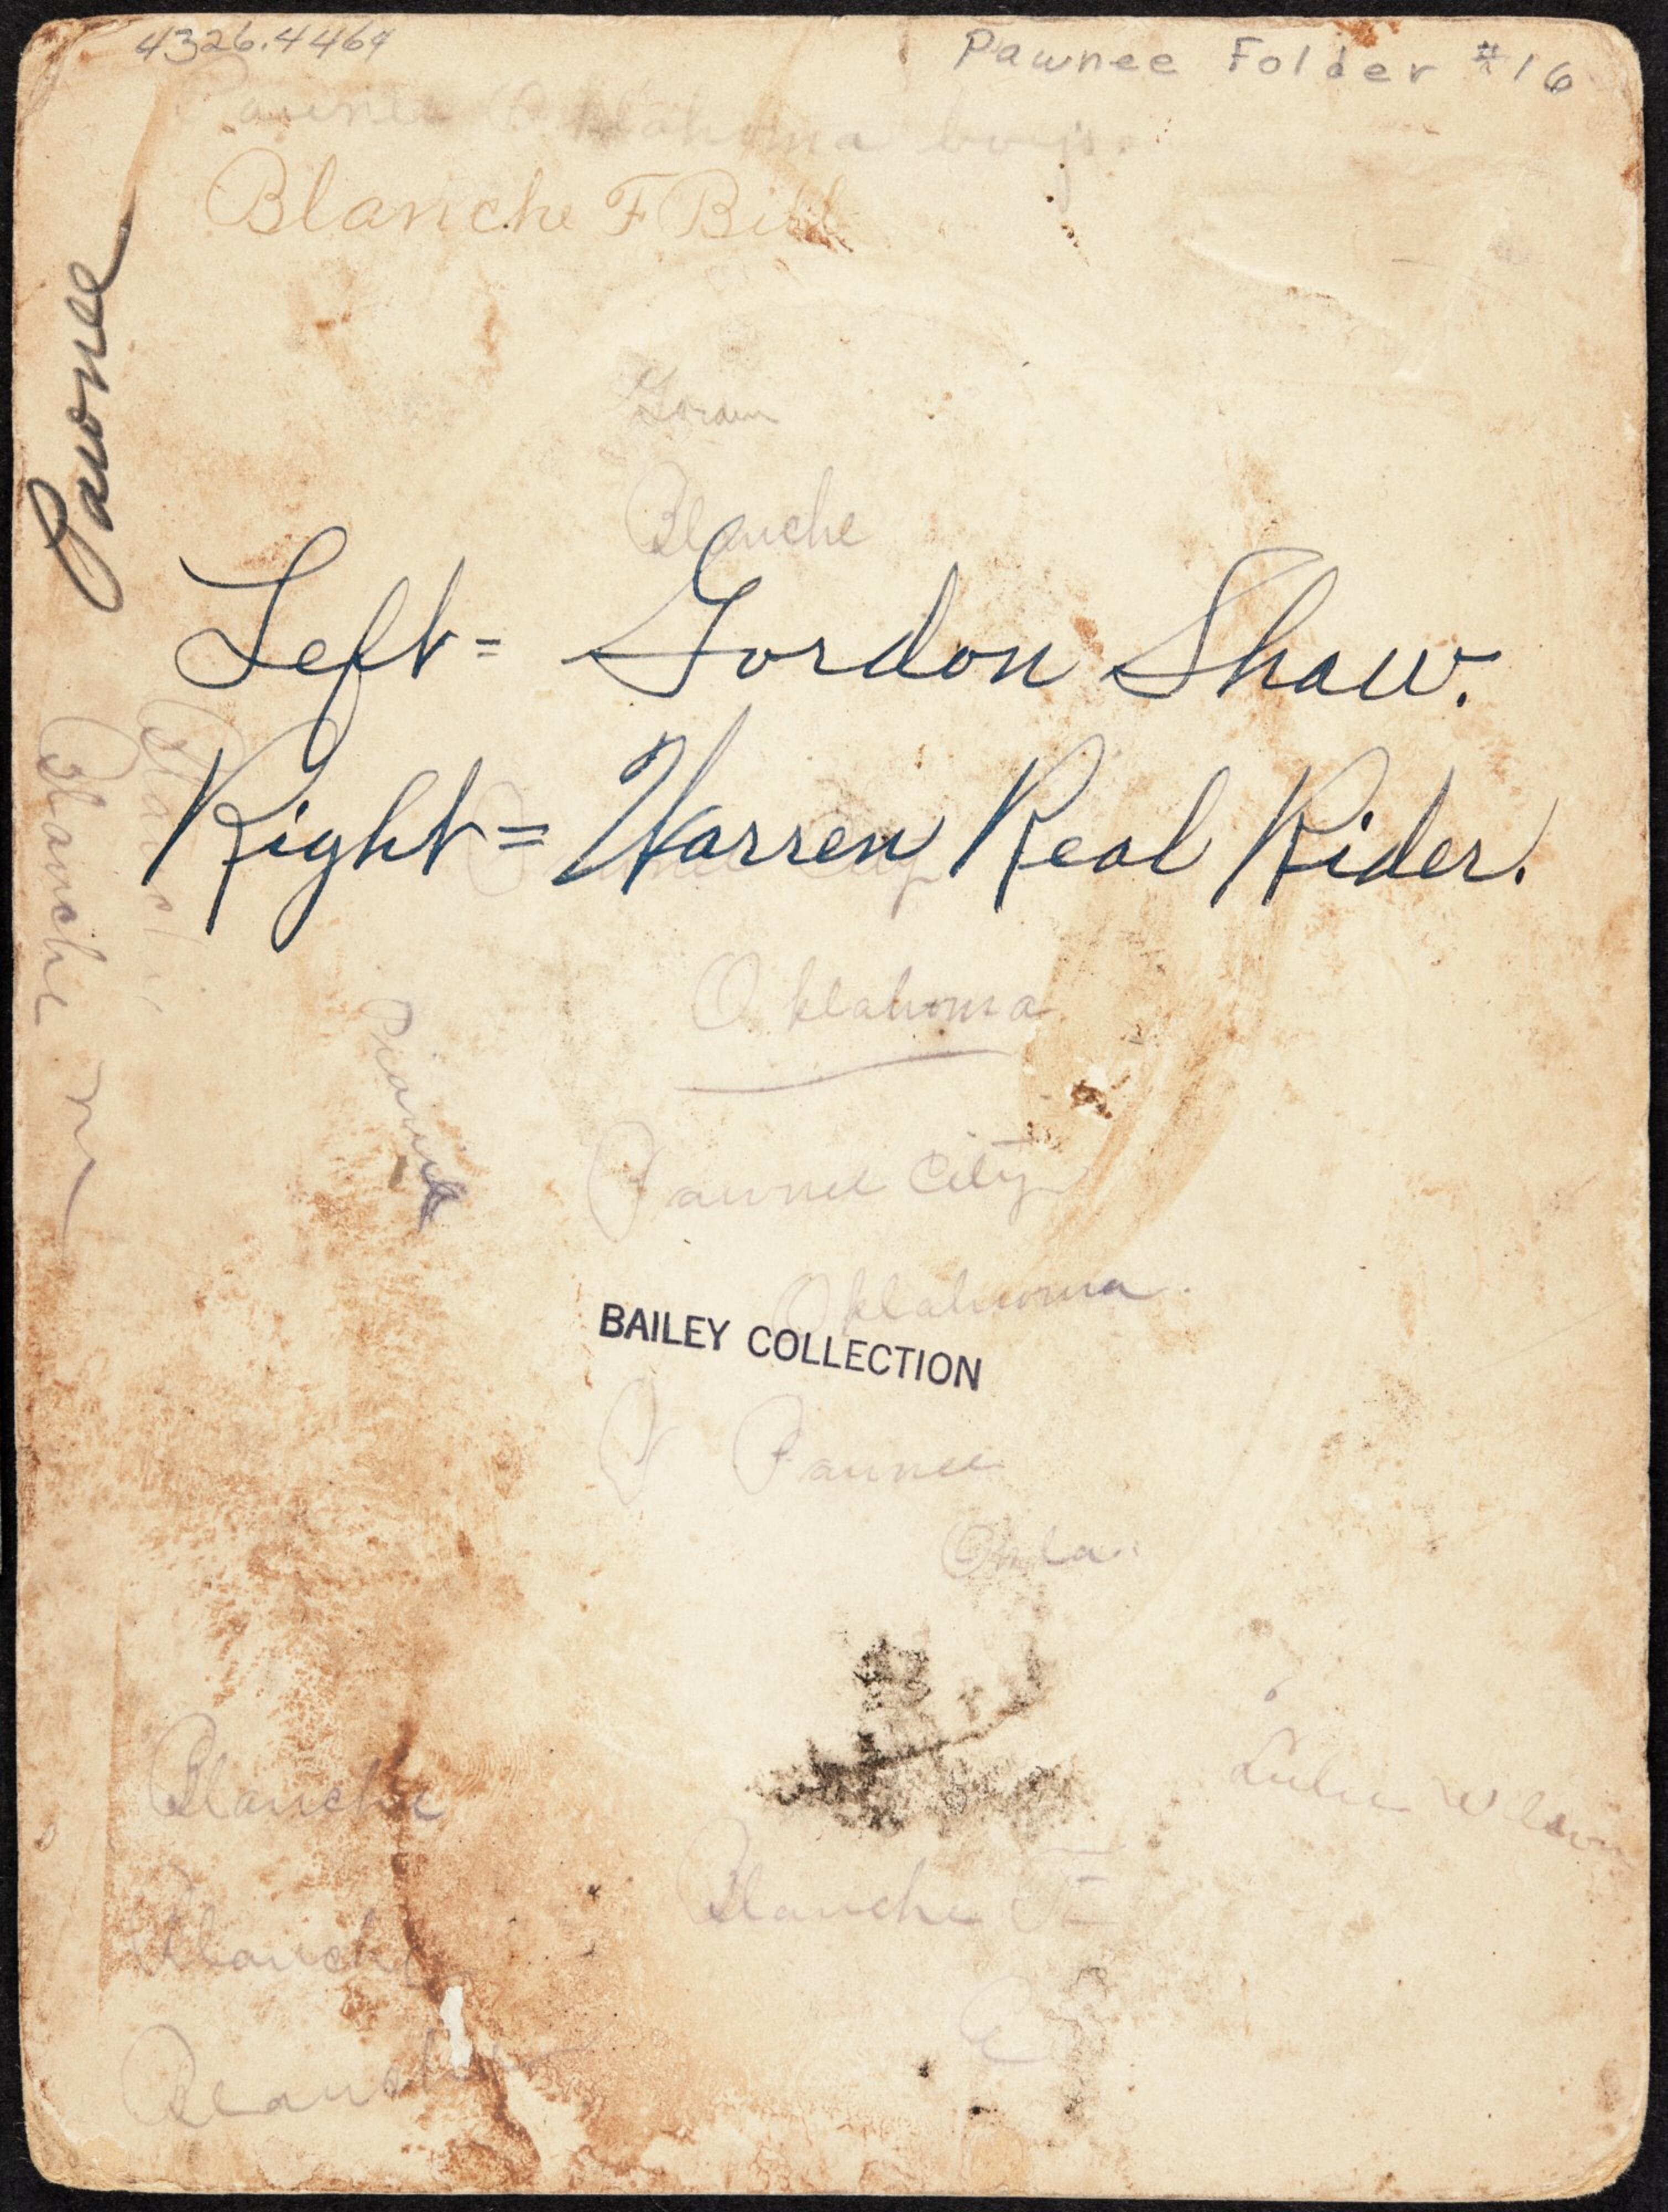 4326.4469
Pawnee Folder #16
Pawnee Oklahoma boys.
Blanche F Bill
Pawnee
Blanche
Left= Gordon Shaw.
Right= Warren Real Rider.
Blanche
City
Oklahoma
Pawnee City
Oklahoma.
BAILEY COLLECTION
P Pawnee
Okla.
Blanche
Lulu Wilson
Blanche
Blanche
Blanche